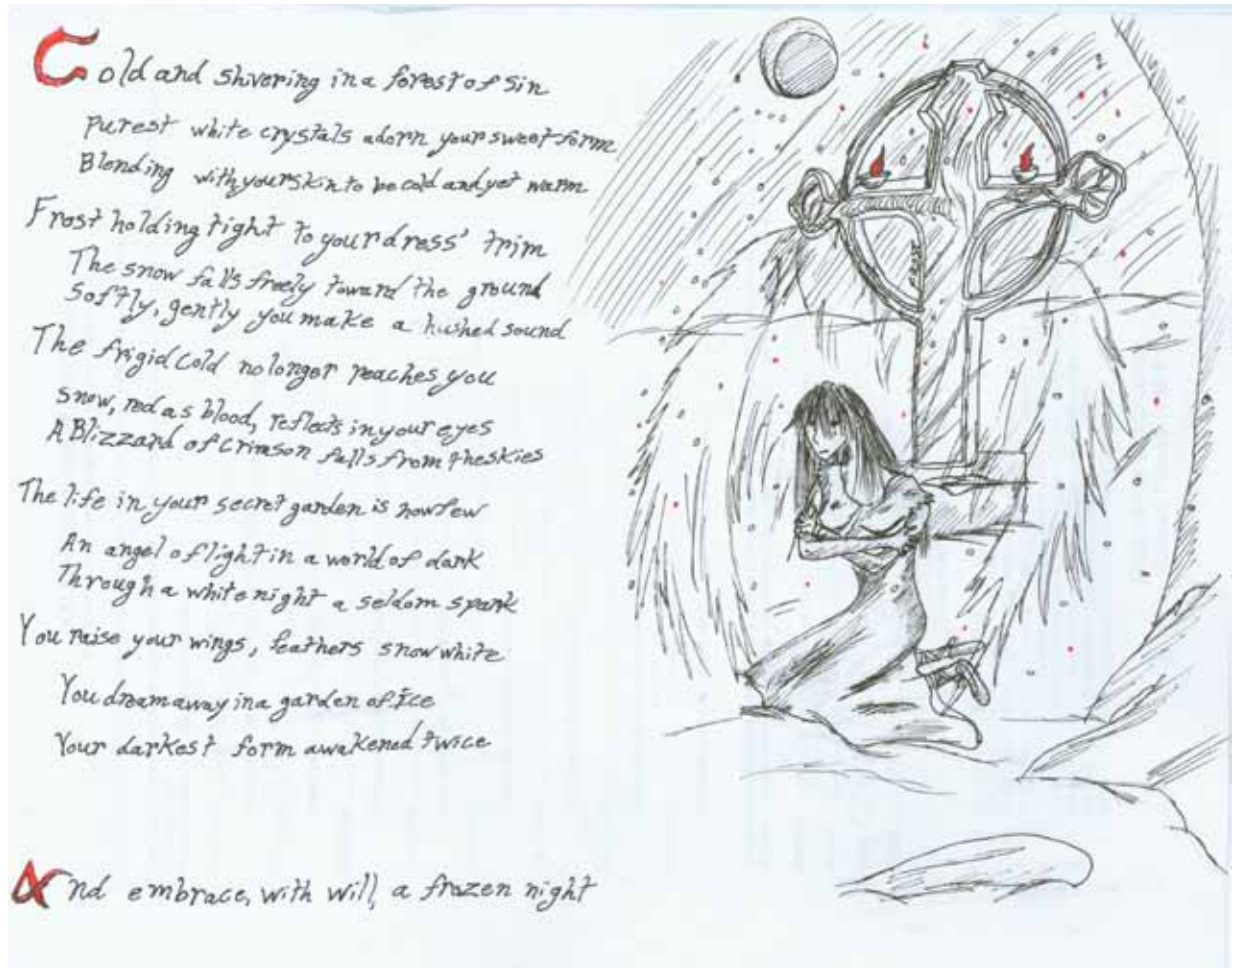 Cold and shivering in a forest of sin
Purest white crystals adorn your sweet form
Blending with your skin to be cold and yet warm
Frost holding tight to your dress' trim
The snow falls freely toward the ground
Softly, gently you make a hushed sound
The frigid cold no longer reaches you
Snow, red as blood, reflects in your eyes
A Blizzard of Crimson falls from the skies
The life in your secret garden is now few
An angel of light in a world of dark
Through a white night a seldom spark
You raise your wings, feathers snow white
You dream away in a garden of Ice
Your darkest form awakened twice
And embrace, with will, a frozen night